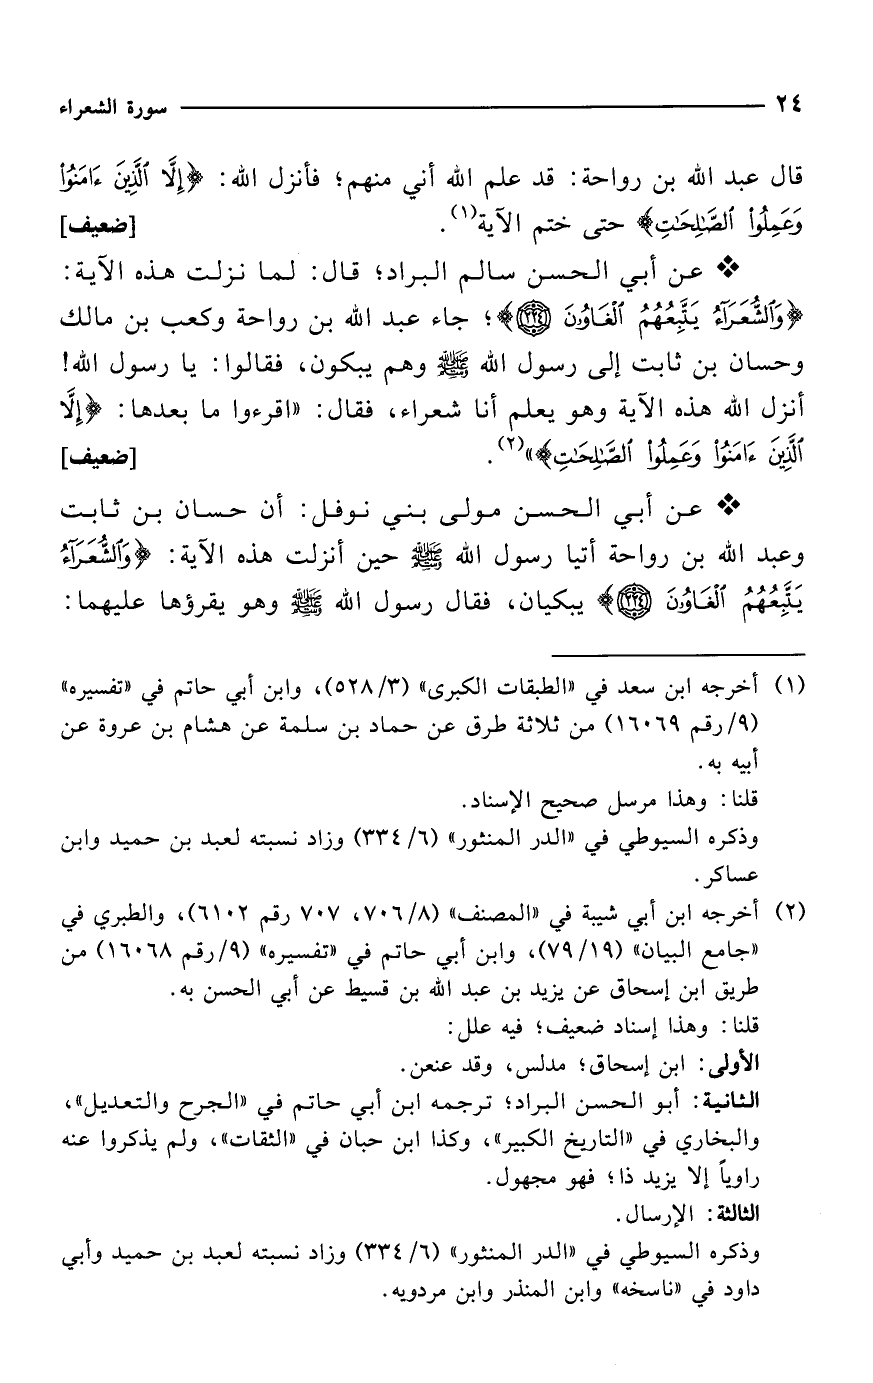 ٢٤ سورة الشعراء
قال عبد الله بن رواحة: قد علم الله أني منهم؛ فأنزل الله: ﴿إِلَّا ٱلَّذِينَ ءَامَنُوا۟
وَعَمِلُوا۟ ٱلصَّـٰلِحَـٰتِ﴾ حتى ختم الآية(١). [ضعيف]
❖ عن أبي الحسن سالم البراد؛ قال: لما نزلت هذه الآية:
﴿وَٱلشُّعَرَآءُ يَتَّبِعُهُمُ ٱلْغَاوُۥنَ ٢٢٤﴾؛ جاء عبد الله بن رواحة وكعب بن مالك
وحسان بن ثابت إلى رسول الله ﷺ وهم يبكون، فقالوا: يا رسول الله!
أنزل الله هذه الآية وهو يعلم أنا شعراء، فقال: «اقرءوا ما بعدها: ﴿إِلَّا
ٱلَّذِينَ ءَامَنُوا۟ وَعَمِلُوا۟ ٱلصَّـٰلِحَـٰتِ﴾»(٢). [ضعيف]
❖ عن أبي الحسن مولى بني نوفل: أن حسان بن ثابت
وعبد الله بن رواحة أتيا رسول الله ﷺ حين أنزلت هذه الآية: ﴿وَٱلشُّعَرَآءُ
يَتَّبِعُهُمُ ٱلْغَاوُۥنَ ٢٢٤﴾ يبكيان، فقال رسول الله ﷺ وهو يقرؤها عليهما:
(١) أخرجه ابن سعد في «الطبقات الكبرى» (٣/ ٥٢٨)، وابن أبي حاتم في «تفسيره»
(٩/ رقم ١٦٠٦٩) من ثلاثة طرق عن حماد بن سلمة عن هشام بن عروة عن
أبيه به.
قلنا: وهذا مرسل صحيح الإسناد.
وذكره السيوطي في «الدر المنثور» (٦/ ٣٣٤) وزاد نسبته لعبد بن حميد وابن
عساكر.
(٢) أخرجه ابن أبي شيبة في «المصنف» (٨/ ٧٠٦، ٧٠٧ رقم ٦١٠٢)، والطبري في
«جامع البيان» (١٩/ ٧٩)، وابن أبي حاتم في «تفسيره» (٩/ رقم ١٦٠٦٨) من
طريق ابن إسحاق عن يزيد بن عبد الله بن قسيط عن أبي الحسن به.
قلنا: وهذا إسناد ضعيف؛ فيه علل:
الأولى: ابن إسحاق؛ مدلس، وقد عنعن.
الثانية: أبو الحسن البراد؛ ترجمه ابن أبي حاتم في «الجرح والتعديل»،
والبخاري في «التاريخ الكبير»، وكذا ابن حبان في «الثقات»، ولم يذكروا عنه
راوياً إلا يزيد ذا؛ فهو مجهول.
الثالثة: الإرسال.
وذكره السيوطي في «الدر المنثور» (٦/ ٣٣٤) وزاد نسبته لعبد بن حميد وأبي
داود في «ناسخه» وابن المنذر وابن مردويه.